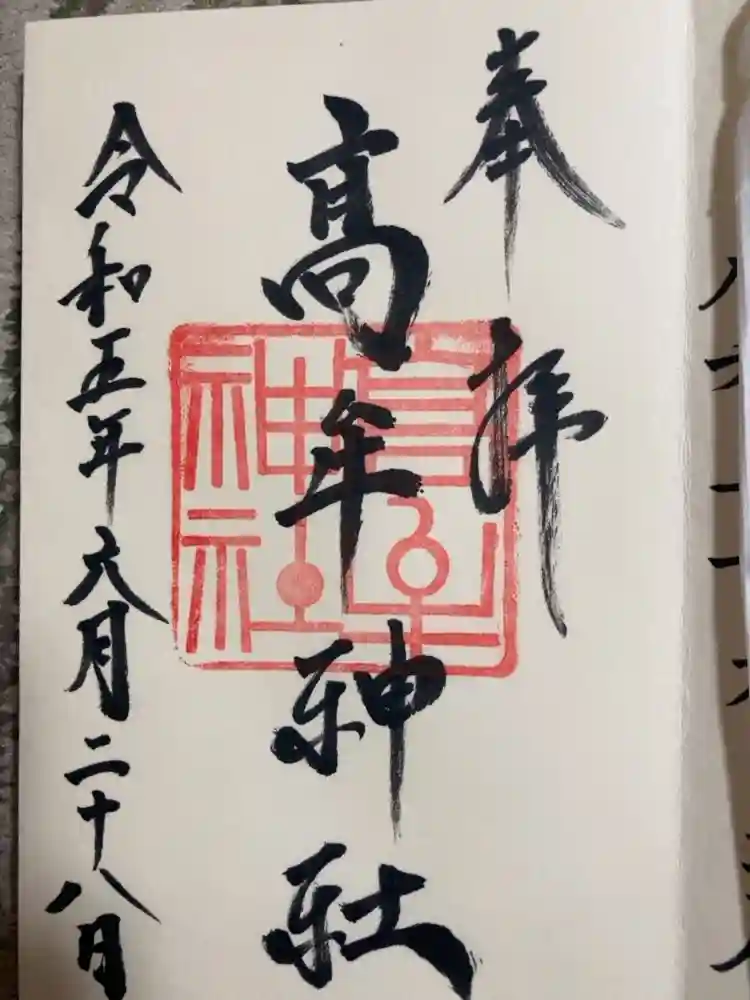 奉拝
髙牟神社
令和五年六月二十八日
高牟
神社